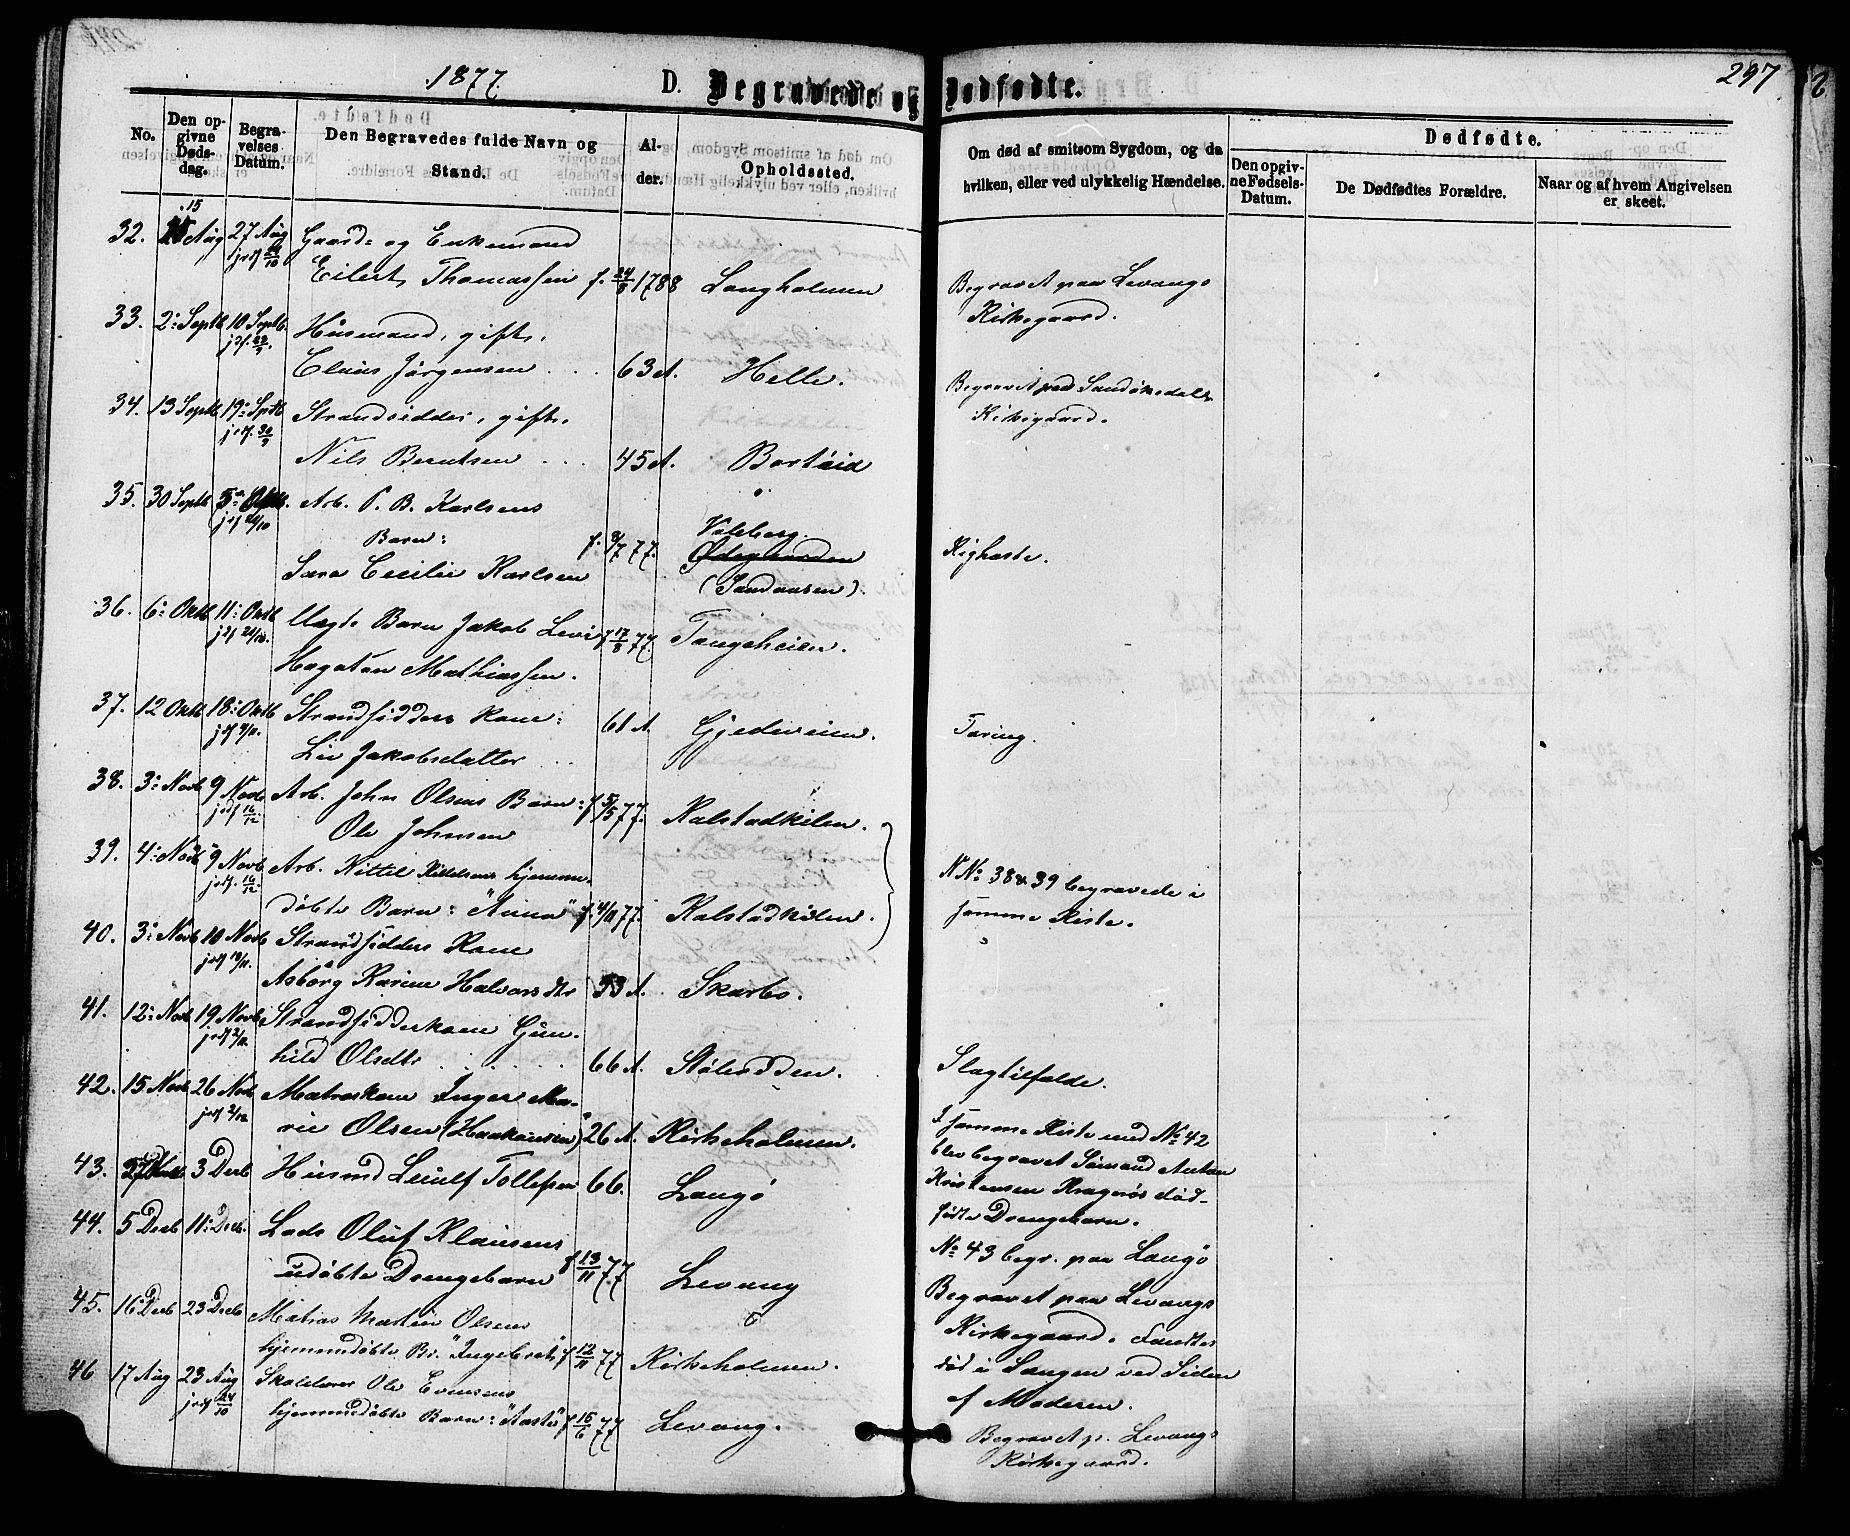 1877. D. Begravede og Dødfødte. 297
No. Den opgivne Dødsdag. Begravelses Datum. Den Begravedes fulde Navn og Stand. Alder. Opholdssted. Om død af smitsom Sygdom, og da hvilken, eller ved ulykkelig Hændelse. Dødfødte.
Den opgivne Fødsels-Datum. De Dødfødtes Forældre. Naar og af hvem Angivelsen er skeet.
32. 15 Aug 27 Aug Gaard- og Enkemand
Eilert Thomassen f. 24/8 1788 Langholmen Begravet paa Levangs
Kirkegaard.
33. 2: Septb 10 Septb. Husmand, gift,
Claus Jørgensen ... 63 A. Helle. Begravet paa Sandøkedals
Kirkegaard.
34. 13 Septb 19: Sptb jrdf. 30/9 Strandsidder, gift,
Nils Berntsen ... 45 A. Barteid
35. 30 Septb Arb. P. B. Karlsens
Barn: Valberg
Sara Cecilie Karlsen f. 77. Ødegaarden Kighoste.
(Sandaasen).
36. 6: Oktb 11: Oktb Uægte Barn Jakob Levi f 17/8 77. Tangeheien.
Hagatan Mathiassen.
37. 12 Oktb 18: Oktb Strandsidders Kone: 61 A. Gjedeveien. Tæring.
Liv Jakobsdatter ...
38. 3: Novb 9 Novb jrdf 16/12 Arb. John Olsens Barn: f 5/5 77. Kalstadkilen.
Ole Johnsen
39. 4: Novb 9 Novb jrdf. 16/12 Arb. Kittil Kittelsens hjemme-
døbte Barn: "Anna" f. 4/11 77. Kalstadkilen. N No 38 & 39 begravede i
samme Kiste.
40. 3: Novb 10 Novb jrdf 18/11. Strandsidders Kone
Asborg Karine Halvorsdtr 53 A. Skarbo.
41. 12: Novb 19 Novb Strandsidderkone Gun-
hild Olsdtr ... 66 A. Stølevdden. Slagtilfælde.
42. 15 Novb 26 Novb jrdf 2/12 Matroskone Inger Ma-
rie Olsen (Haakansen) 26 A. Kirkeholmen. I samme Kiste med No 42
blev begravet Sømand Anton
Kristensen Kragerøs død-
fødte Drengebarn.
43. 3 Decb Husmd Leuulf Tollefsen 66. Langø No 43 begr. paa Langø
44. 5 Decb 11: Decb. Lods Oluf Klausens
udøbte Drengebarn f 13/11 77 Levang Begravet paa Levangs
Kirkegaard. Fandtes
død i Sængen ved Siden
af Moderen.
45. 16 Decb 23 Decb Matros Martin Olsens
hjemmedøbte Br. "Ingebret", f 12/11 77 Kirkeholmen.
46 17 Aug 23 Aug jrdf 14/10 Skolelærer Ole Evensens
hjemmedøbte Barn: "Aasta" f 15/6 77 Levang. Begravet p. Levangs
Kirkegaard.